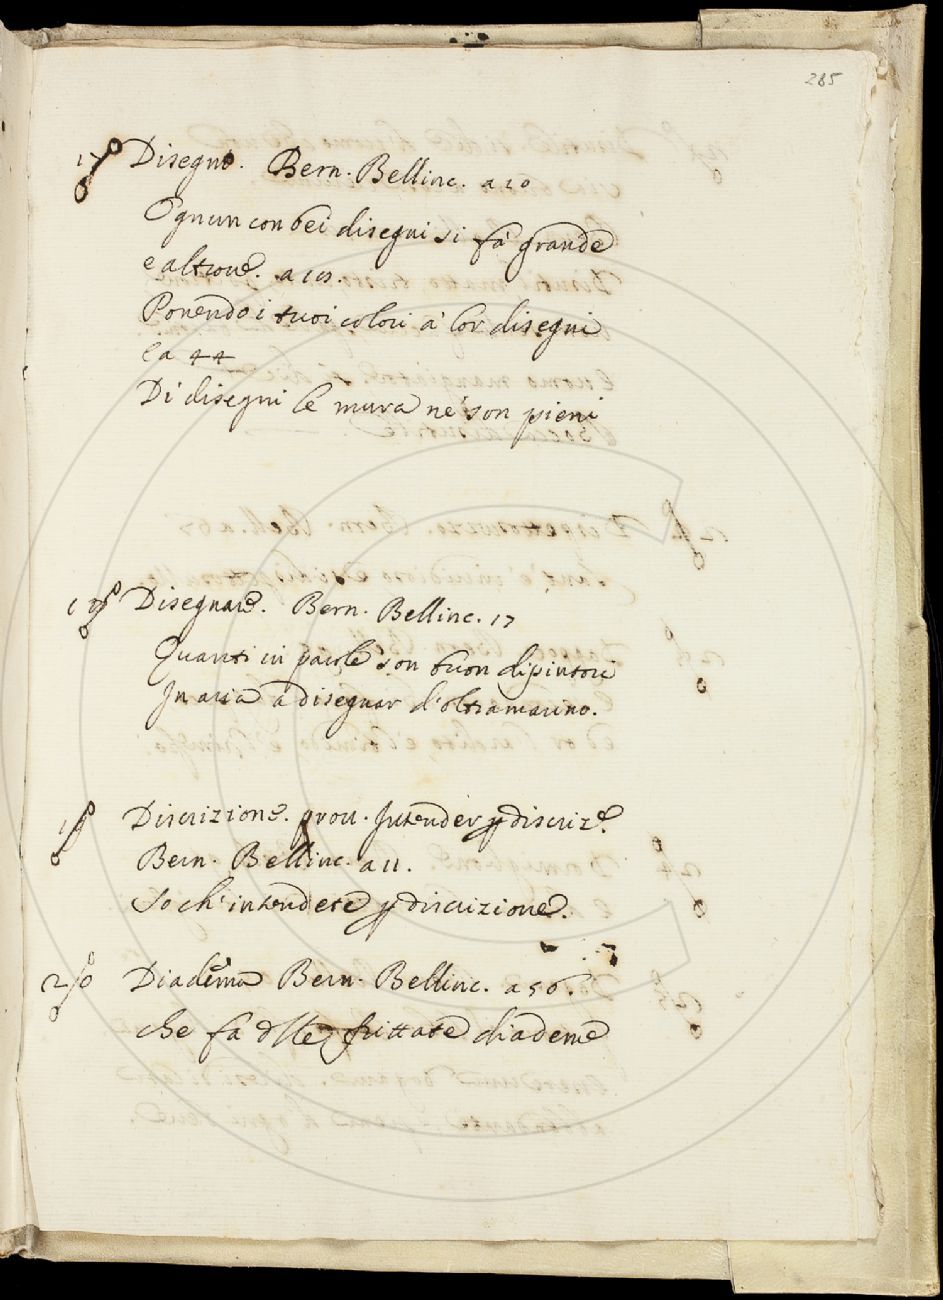 285
17 Disegno. Bern. Bellinc. a 20
Ognun con bei disegni si fà grande
e altroue. a 101.
Ponendo i tuoi colori à lor disegni
e a 44
Di disegni le mura ne son pieni
18 Disegnare. Bern. Bellinc. 17
Quanti in parole son buon dipintori
In aria a disegnar d'oltramarino.
19 Discrizione. prou. Intender p discrize.
Bern. Bellinc. a 11.
So ch'intendete p discrizione.
20 Diadema Bern. Bellinc. a 56.
che fa dlle frittate diademe